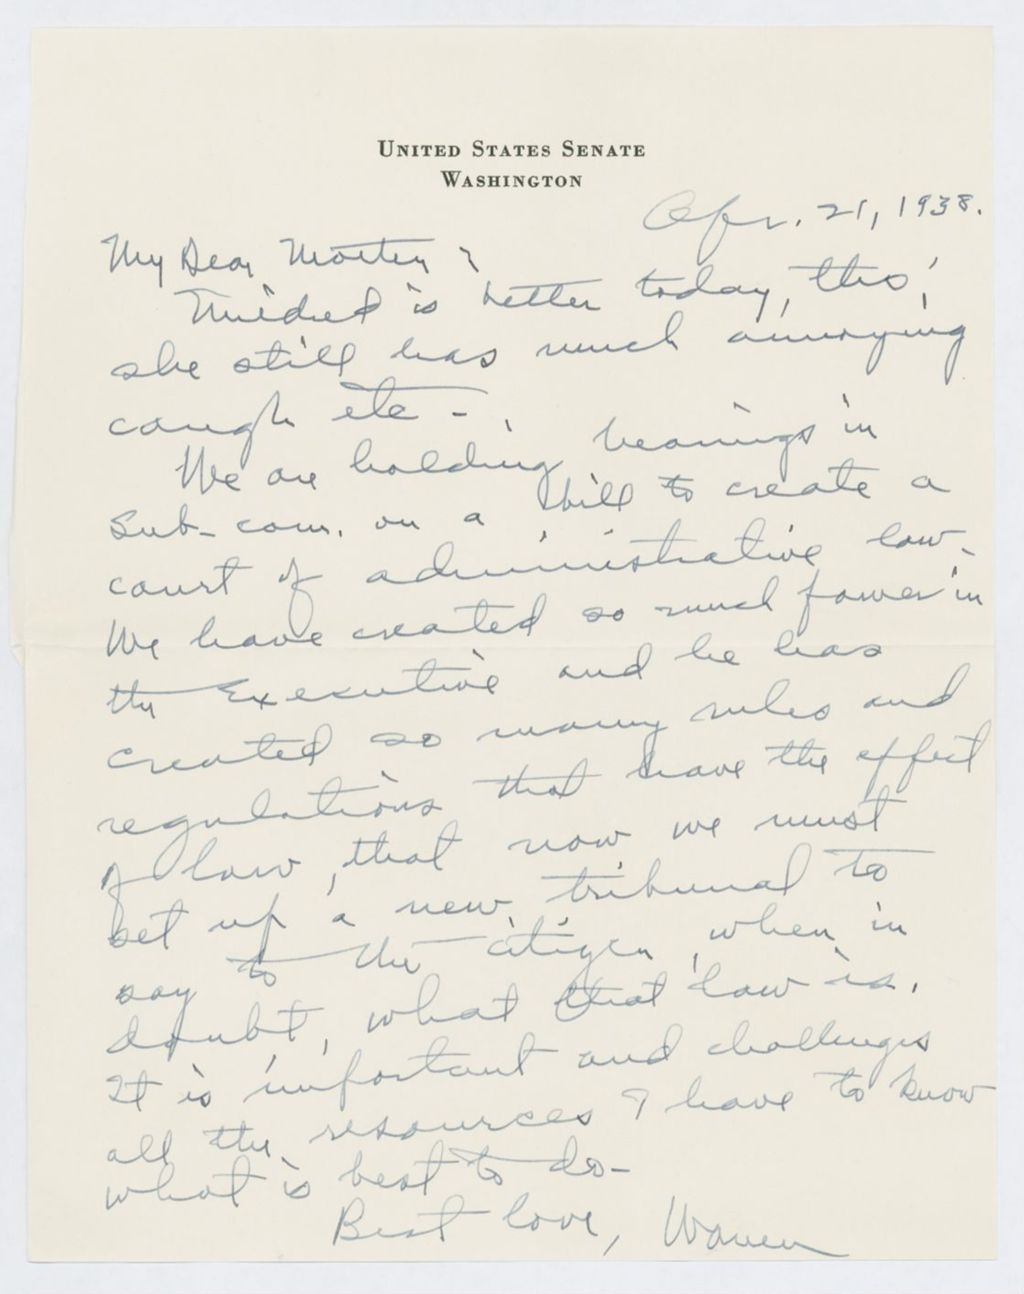 UNITED STATES SENATE
WASHINGTON
Apr. 21, 1938.
My Dear Morten;
Mildred is better today, tho',
she still has much annoying
cough etc -
We are holding hearings in
sub-com. on a bill to create a
court of administrative law.
We have created so much power in
the Executive and he has
created so many rules and
regulations that have the effect
of law, that now we must
set up a new tribunal to
say to the citizen, when in
doubt, what that law is.
It is important and challenges
all the resources I have to know
what is best to do-
Best love, Warren